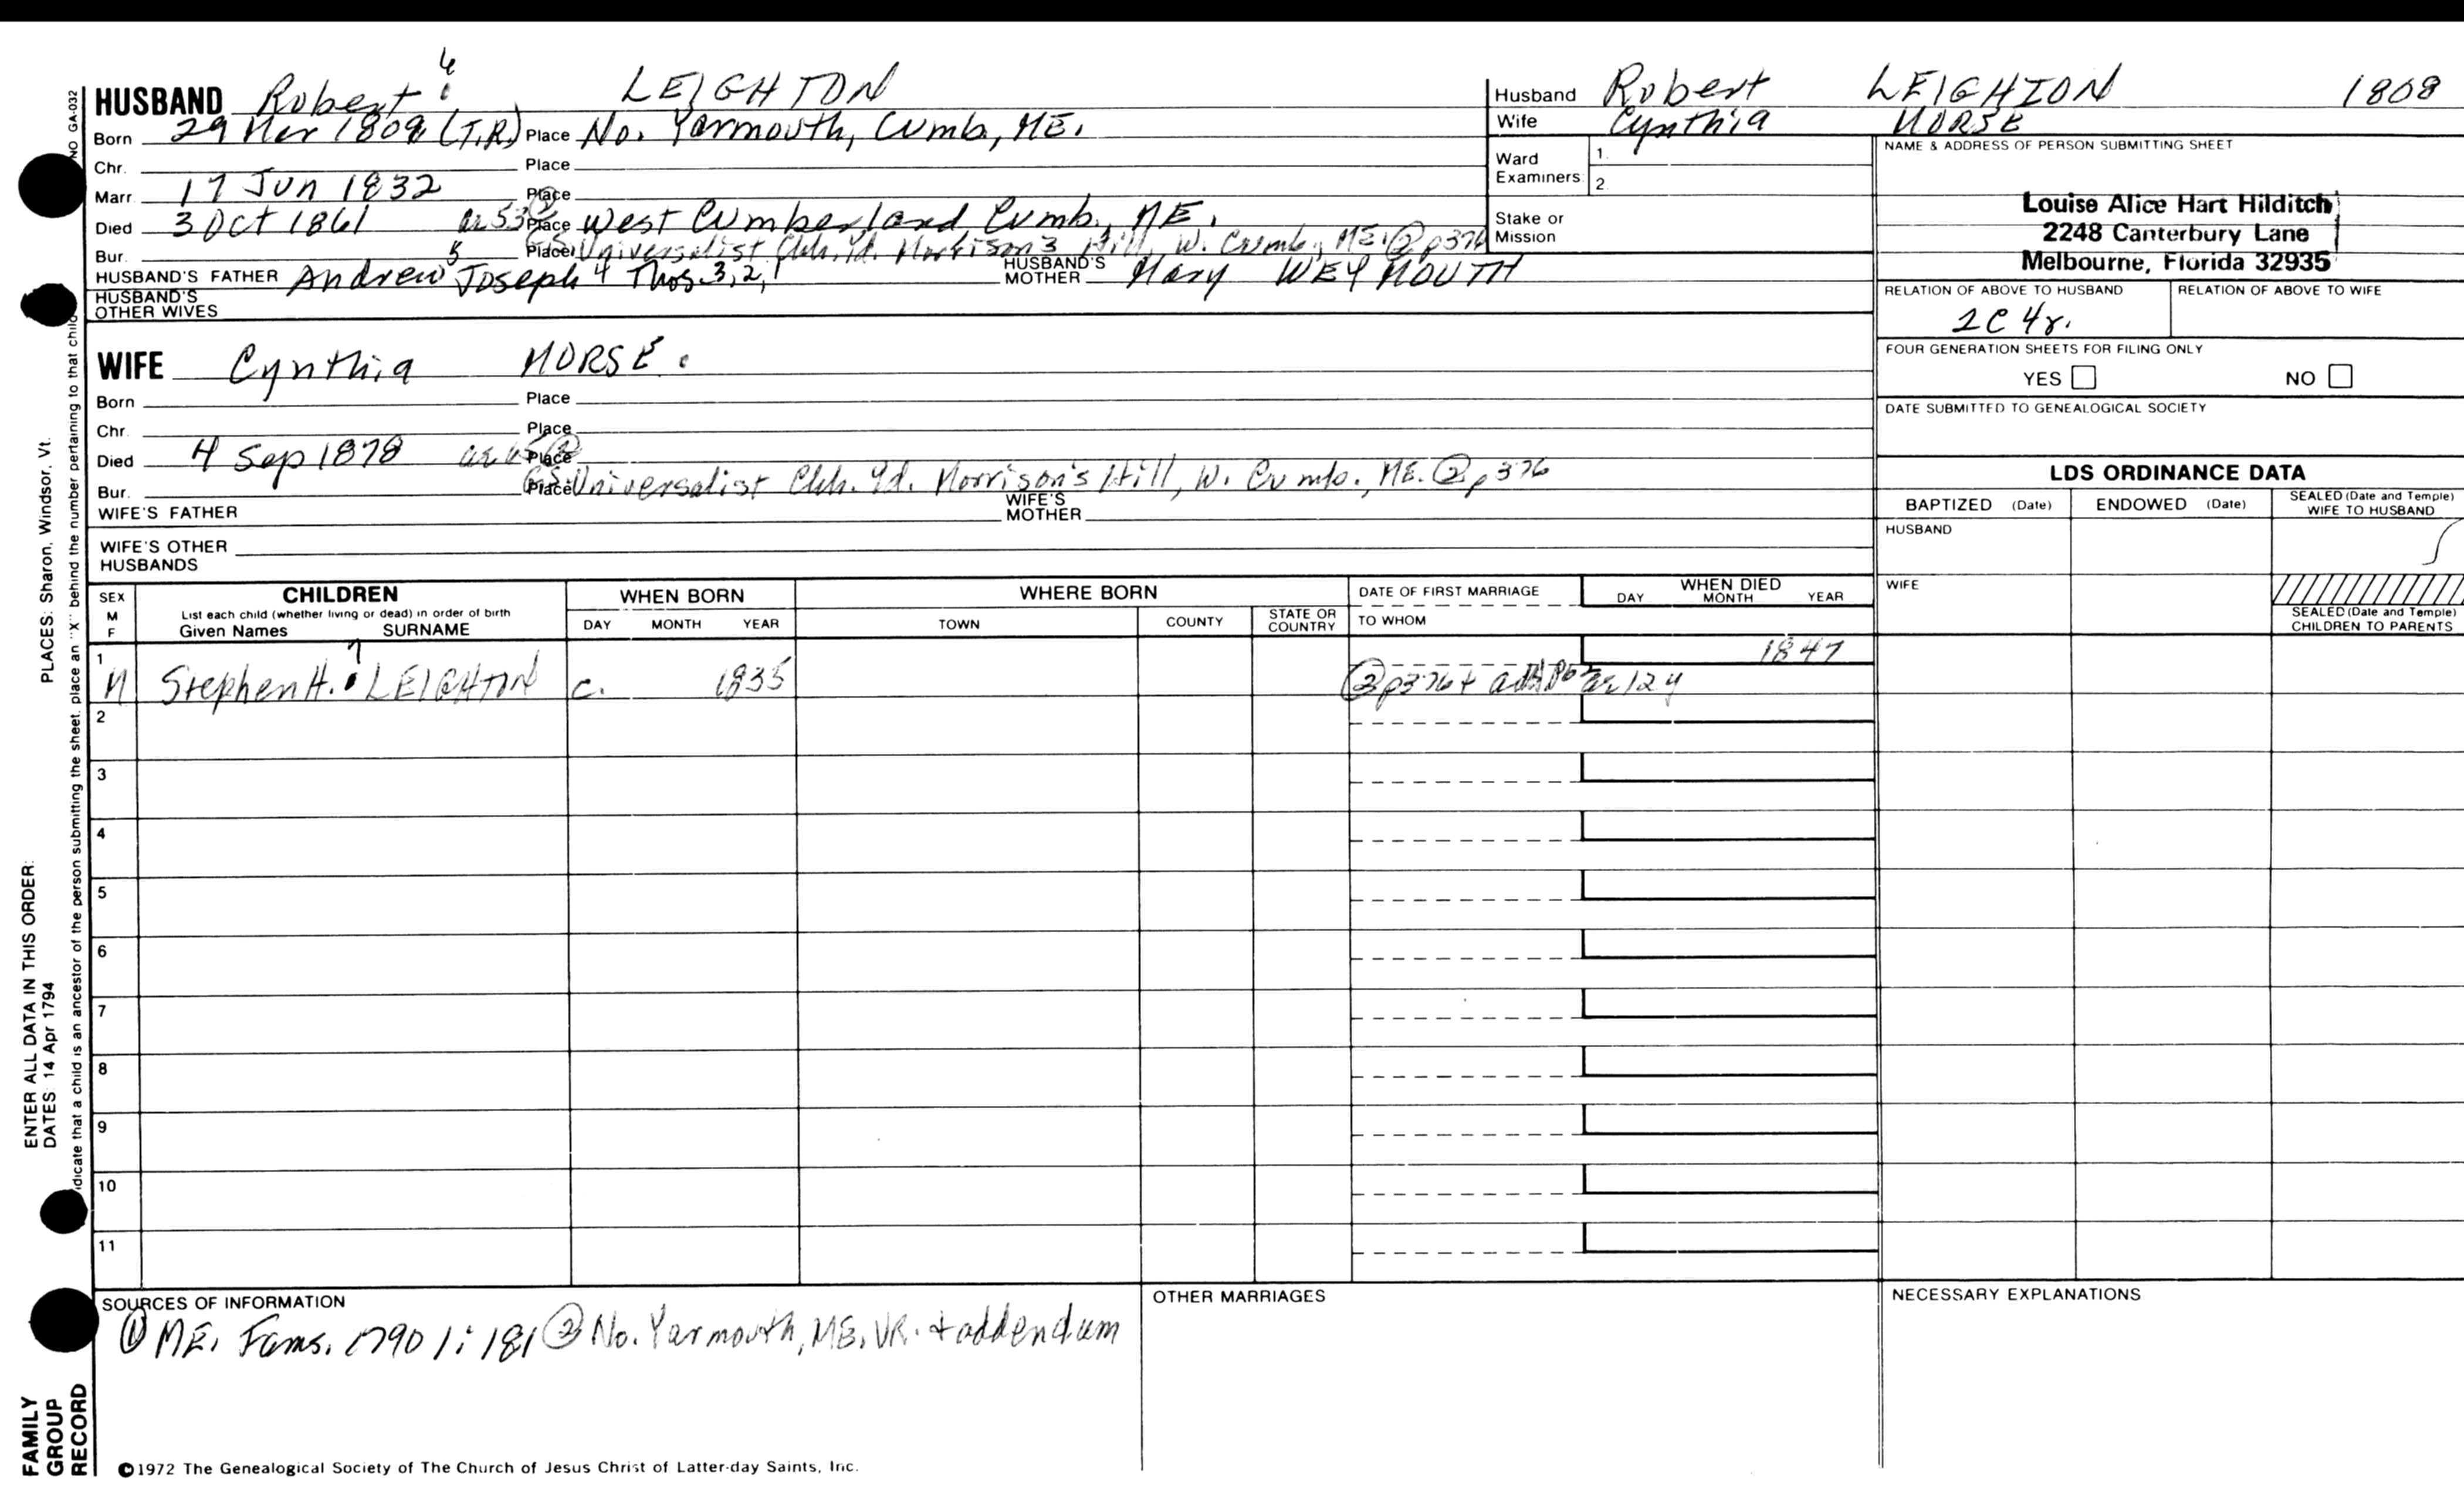 HUSBAND Robert 6 LEIGHTON
Born 29 Mar 1808 (T.R.) Place No. Yarmouth, Cumb, ME.
Chr. Place
Marr. 17 Jun 1832 Place
Died 3 Oct 1861 ae 53 Place West Cumberland, Cumb., ME.
Bur. Place Universalist Chh. Yd. Morrison's Hill, W. Cumb., ME. ② p376
HUSBAND'S FATHER Andrew 5 Joseph 4 Thos. 3, 2, 1 HUSBAND'S MOTHER Mary WEYMOUTH
HUSBAND'S OTHER WIVES
WIFE Cynthia MORSE.
Born Place
Chr. Place
Died 4 Sep 1878 Place
Bur. Place Universalist Chh. Yd. Morrison's Hill, W. Cumb., ME. ② p376
WIFE'S FATHER WIFE'S MOTHER
WIFE'S OTHER HUSBANDS
Husband Robert LEIGHTON 1808
Wife Cynthia MORSE
Ward Examiners 1. 2.
Stake or Mission
NAME & ADDRESS OF PERSON SUBMITTING SHEET
Louise Alice Hart Hilditch
2248 Canterbury Lane
Melbourne, Florida 32935
RELATION OF ABOVE TO HUSBAND RELATION OF ABOVE TO WIFE
2C 4r.
FOUR GENERATION SHEETS FOR FILING ONLY
YES NO
DATE SUBMITTED TO GENEALOGICAL SOCIETY
LDS ORDINANCE DATA
BAPTIZED (Date) ENDOWED (Date) SEALED (Date and Temple) WIFE TO HUSBAND
HUSBAND
WIFE
SEALED (Date and Temple) CHILDREN TO PARENTS
SEX M F CHILDREN WHEN BORN WHERE BORN DATE OF FIRST MARRIAGE WHEN DIED
List each child (whether living or dead) in order of birth
Given Names SURNAME DAY MONTH YEAR TOWN COUNTY STATE OR COUNTRY TO WHOM DAY MONTH YEAR
1 M Stephen H. 7 LEIGHTON c. 1835 1847
② p376 + ae 12 y
2
3
4
5
6
7
8
9
10
11
SOURCES OF INFORMATION OTHER MARRIAGES NECESSARY EXPLANATIONS
① ME. Fams. 1790 1: 181 ② No. Yarmouth, ME. VR. + addendum
©1972 The Genealogical Society of The Church of Jesus Christ of Latter-day Saints, Inc.
FAMILY GROUP RECORD
ENTER ALL DATA IN THIS ORDER:
DATES: 14 Apr 1794
PLACES: Sharon, Windsor, Vt.
dicate that a child is an ancestor of the person submitting the sheet, place an "X" behind the number pertaining to that child
NO GA-032